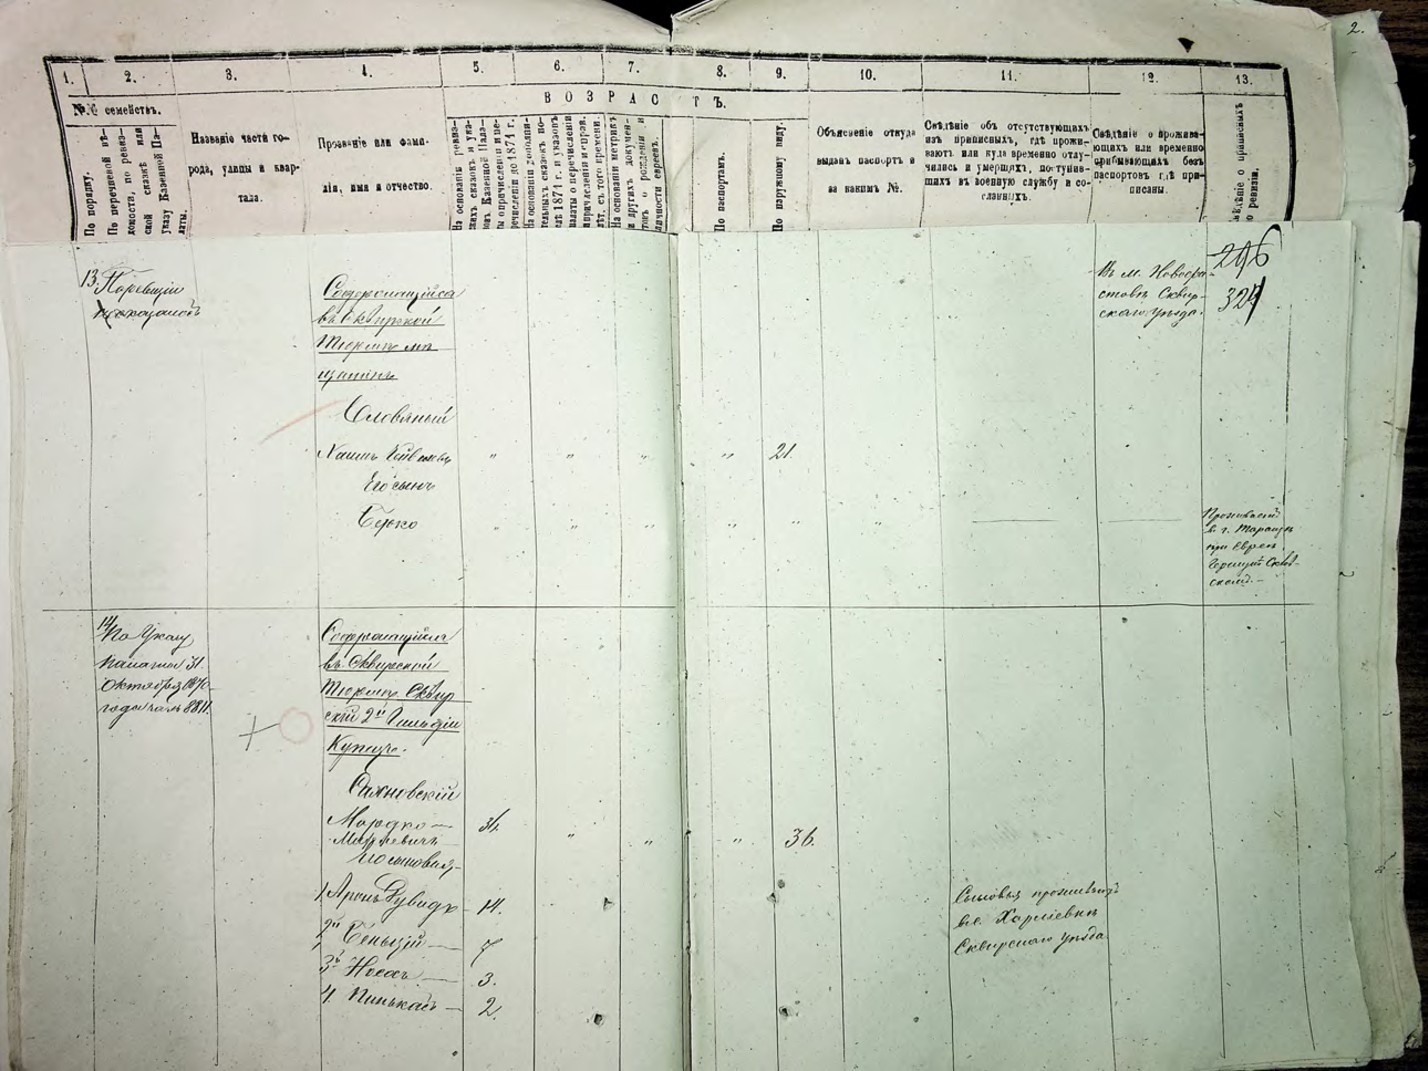 2.
1. 2. 3. 4. 5. 6. 7. 8. 9. 10. 11. 12. 13.
№№ семействъ.
По порядку.
По перечневой вѣ-
домости, по ревиз-
ской сказкѣ или
указу Казенной Па-
латы.
Названіе части го-
рода, улицы и квар-
тала.
Прозваніе или фами-
лія, имя и отчество.
ВОЗРАСТЪ.
На основаніи ревиз-
скихъ сказокъ и ука-
зовъ Казенной Пала-
ты о причисленіи и пе-
речисленіи до 1871 г.
На основаніи дополни-
тельныхъ сказокъ по-
слѣ 1871 г. и указовъ
палаты о перечисленіи
и причисленіи и справ.
лѣт. съ того времени.
На основаніи метрикъ
и другихъ докумен-
товъ о рожденіи и
личности евреевъ.
По паспортамъ.
По наружному виду.
Объясненіе откуда
выданъ паспортъ и
за какимъ №.
Свѣдѣніе объ отсутствующихъ
изъ приписныхъ, гдѣ прожи-
ваютъ или куда временно отлу-
чились и умершихъ, поступив-
шихъ въ военную службу и со-
сланныхъ.
Свѣдѣніе о прожива-
ющихъ или временно
прибывающихъ безъ
паспортовъ гдѣ при-
писаны.
Свѣдѣніе о приписныхъ
по ревизіи.
13.
По ревизіи
не показанъ
Содержащійся
въ Сквирской
Тюрьмѣ мѣ
щанинъ
Словяный
Хаимъ " " " " 21.
Его сынъ
Берко " " " " " "
Въ м. Новофа
стовѣ Сквир-
скаго уѣзда.
296
324
Проживаетъ
в. г. Таращѣ
при Еврей
14
По Указу
палаты 31.
Октября 1870
года за № 8811.
Содержащійся
въ Сквирской
Тюрьмѣ Сквир
скій 2й Гильдіи
Купецъ.
Сахновскій
Мордко — 31. " " " 36.
его сыновья
1. Аронъ Дувидъ - 14.
2й — 7
3й — 3.
4. — 2.
Сыновья проживаютъ
в с. Харлѣевкѣ
Сквирскаго уѣзда